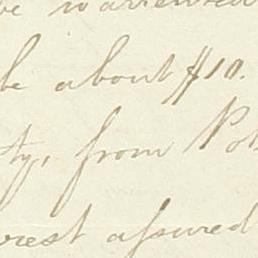 be warrented
be about $10.
ty, from Po
rest assured